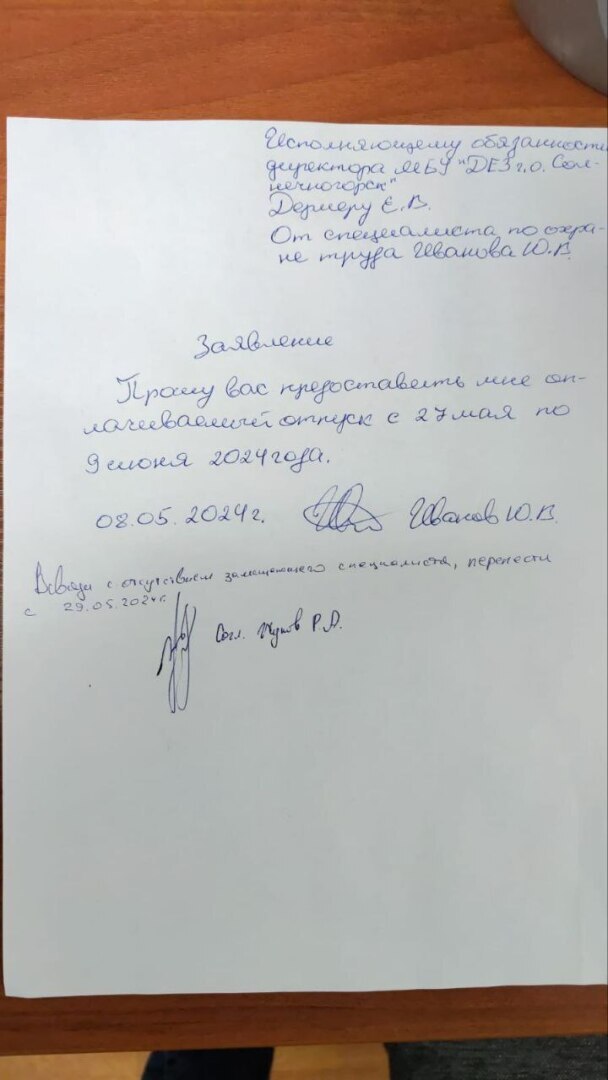 Исполняющему обязанности
директора МБУ "ДЕЗ г.о. Сол-
нечногорск"
Дермеру Е.В.
От специалиста по охра-
не труда Иванова Ю.В.
Заявление
Прошу вас предоставить мне оп-
лачиваемый отпуск с 27 мая по
9 июня 2024 года.
08.05.2024г. Иванов Ю.В.
Всвязи с отсутствием замещающего специалиста, перенести
с 29.05.2024г.
Согл. Жуков Р.О.